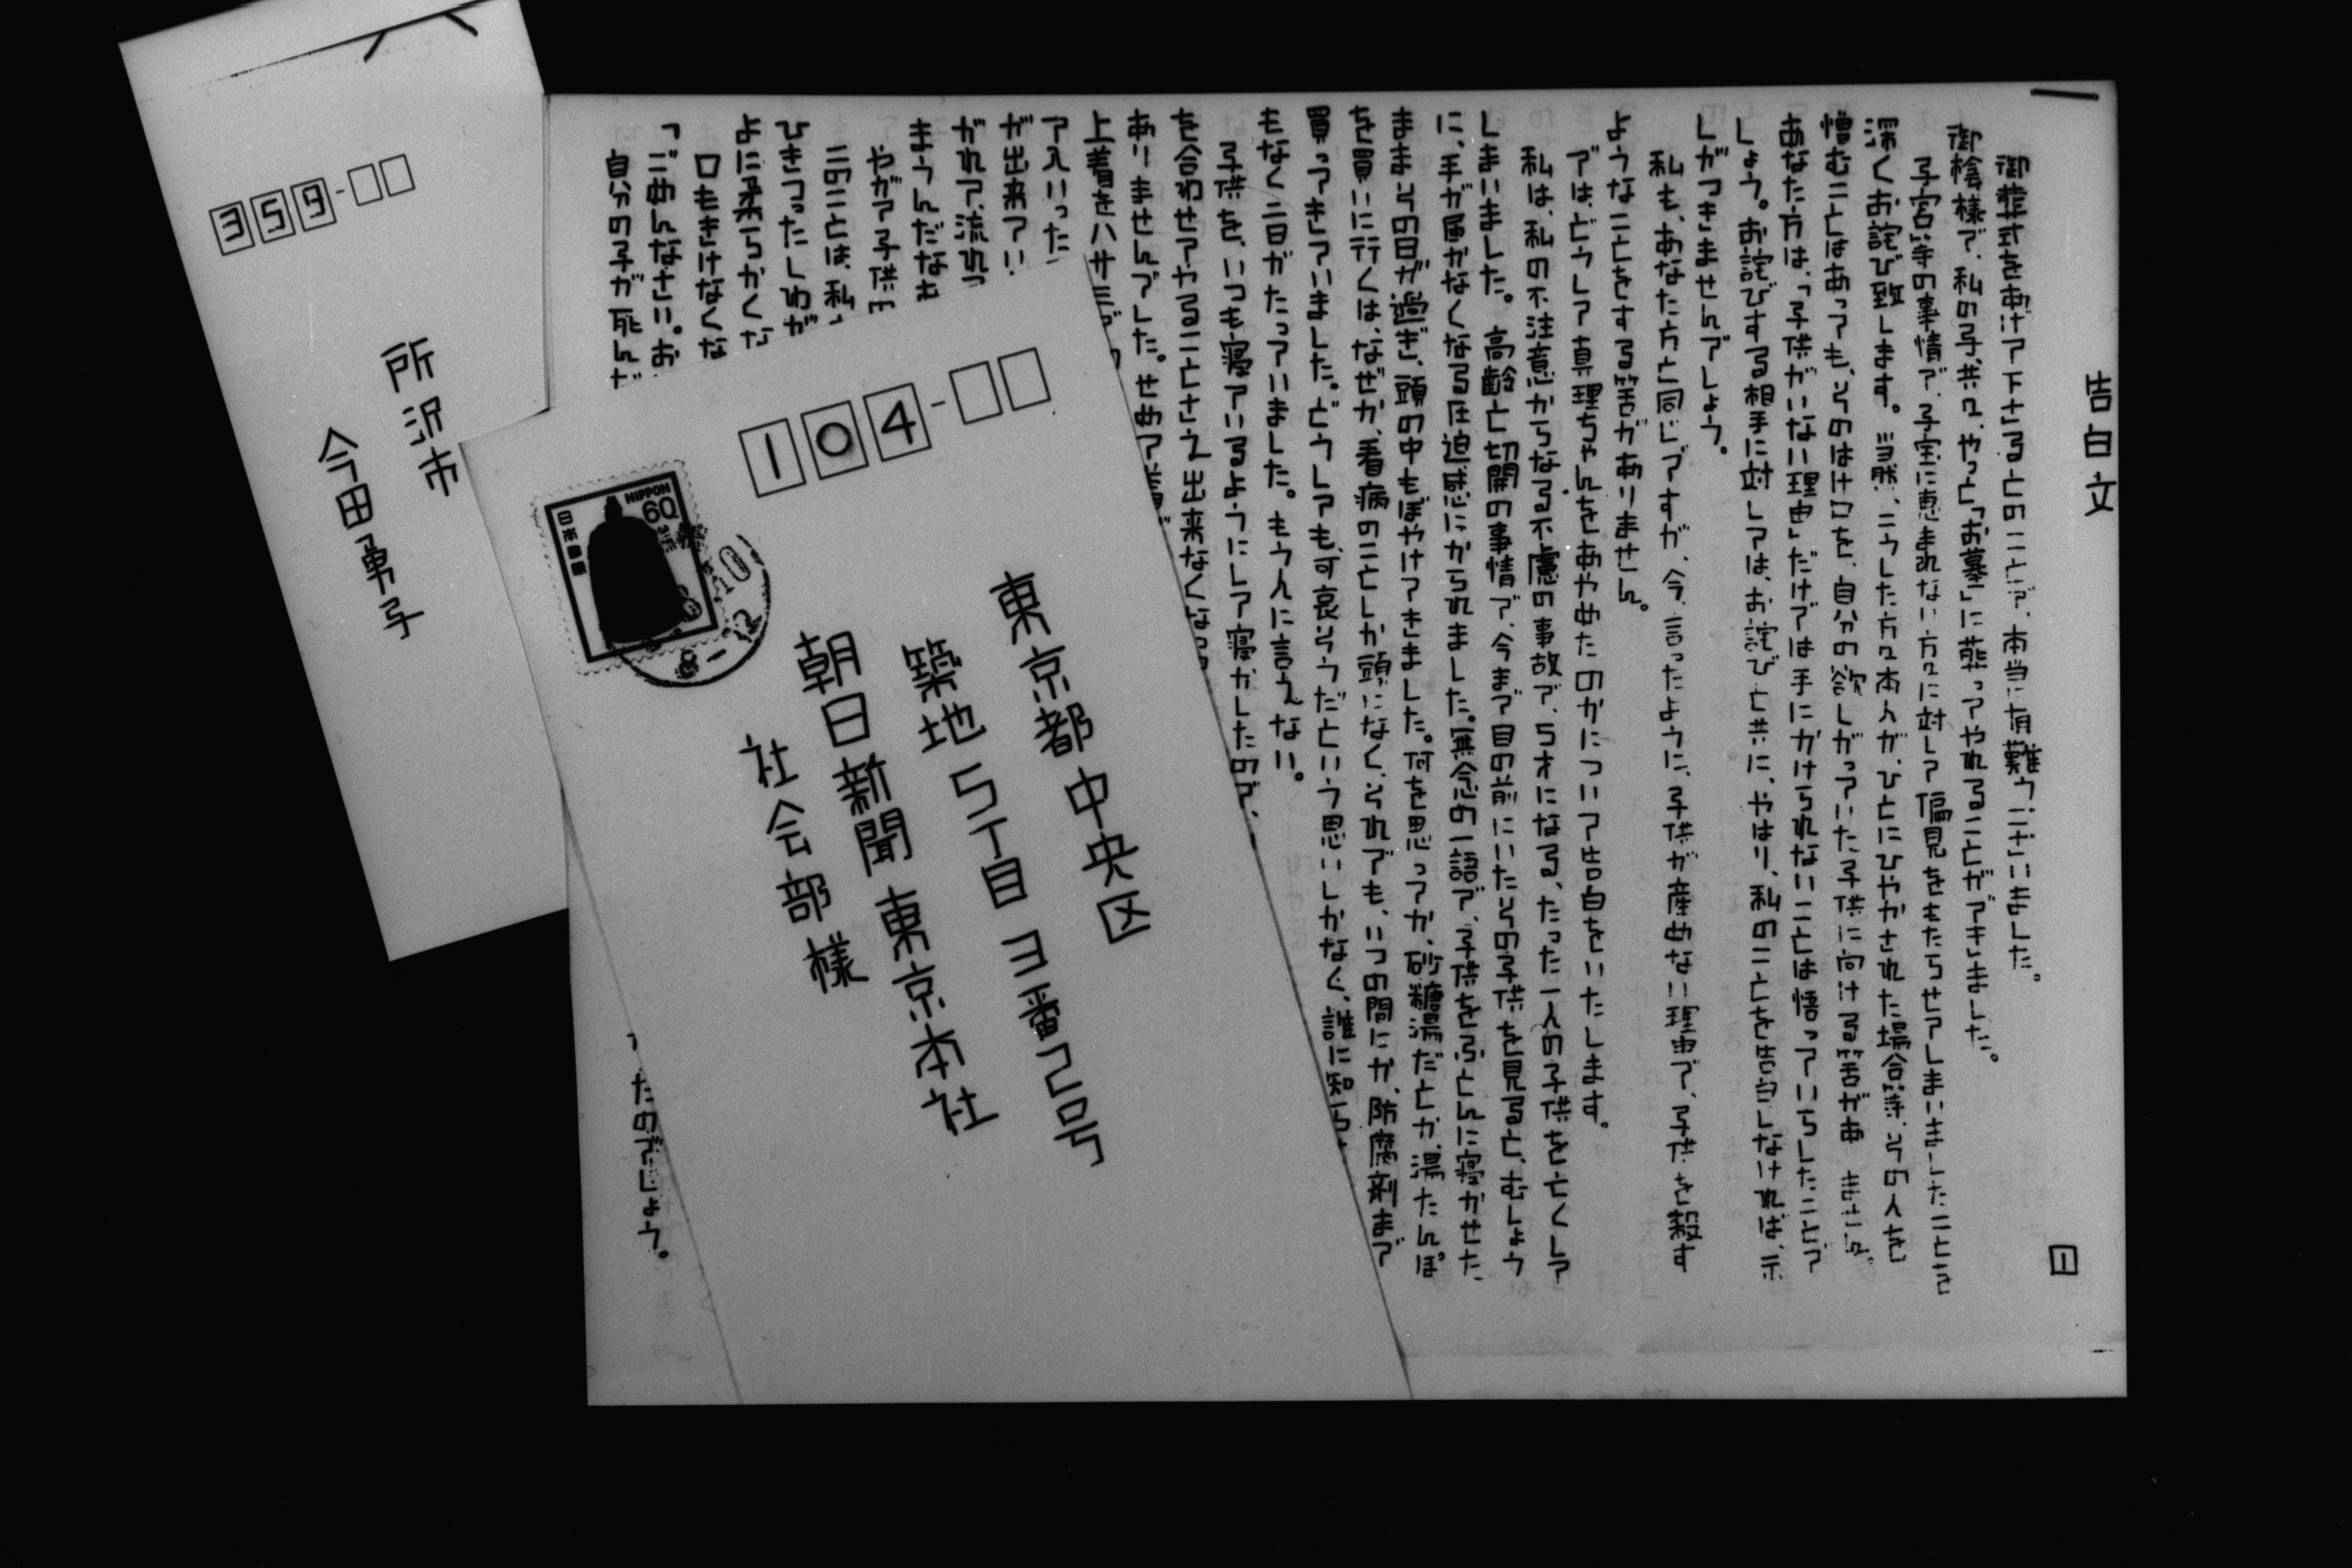 告白文
1
御葬式をあげて下さるとのことで、本当に有難うございました。
御陰様で、私の子、共々、やっと「お墓」に葬ってやれることができました。
子宮等の事情で、子宝に恵まれない方々に対して偏見をもたらせてしまいましたことを
深くお詫び致します。当然、こうした方々本人が、ひとにひやかされた場合等、その人を
憎むことはあっても、そのはけ口を、自分の欲しがっていた子供に向ける筈があ ません。
あなた方は、「子供がいない理由」だけでは手にかけられないことは悟っていらしたことで
しょう。お詫びする相手に対しては、お詫びと共に、やはり、私のことを告白しなければ、示
しがつきませんでしょう。
私も、あなた方と同じですが、今、言ったように、子供が産めない理由で、子供を殺す
ようなことをする筈がありません。
では、どうして真理ちゃんをあやめたのかについて告白をいたします。
私は、私の不注意からなる不慮の事故で、5才になる、たった一人の子供を亡くして
しまいました。高齢と切開の事情で、今まで目の前にいたその子供を見ると、むしょう
に、手が届かなくなる圧迫感にかられました。無念の一語で、子供をふとんに寝かせた
ままその日が過ぎ、頭の中もぼやけてきました。何を思ってか、砂糖湯だとか、湯たんぽ
を買いに行くは、なぜか、看病のことしか頭になく、それでも、いつの間にか、防腐剤まで
買ってきていました。どうしても、可哀そうだという思いしかなく、誰に知らせ
もなく二日がたっていました。もう人に言えない。
子供を、いつも寝ているようにして寝かしたので、
を合わせてやることさえ出来なくなっ
ありませんでした。せめて着が
上着をハサミで
て入いった
が出来てい
がれて、流れ
まうんだなぁ
やがて子供の
このことは、私
ひきつったしわが
よに柔らかくな
口もきけなくな
「ごめんなさい。お
自分の子が死んだ
ったのでしょう。
104-
東京都中央区
築地5丁目3番2号
朝日新聞東京本社
社会部様
NIPPON
60
日本郵便
8-12
359-
所沢市
今田勇子